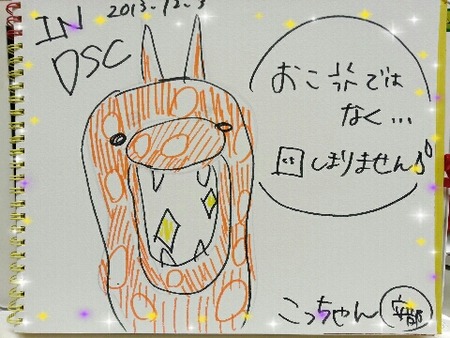 IN
DSC
2013.12.3
おこ
では
なく...
しまりません♪
こっちゃん
安部